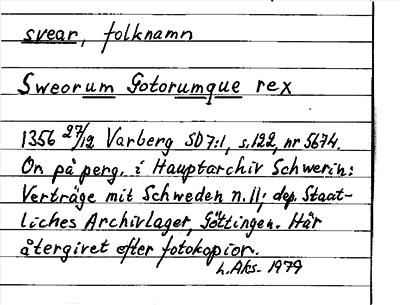 svear, folknamn
Sweorum Gotorumque rex
1356 27/12 Varberg SD 7:1, s.122, nr 5674.
Or på perg. i Hauptarchiv Schwerin:
Verträge mit Schweden n.11; dep. Staat-
liches Archivlager, Göttingen. Här
återgivet efter fotokopior.
L.Aks- 1979